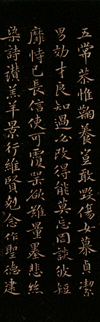 五常恭惟鞠養豈敢毀傷女慕貞潔
男効才良知過必改得能莫忘罔談彼短
靡恃己長信使可覆器欲難量墨悲絲
染詩讚羔羊景行維賢剋念作聖德建